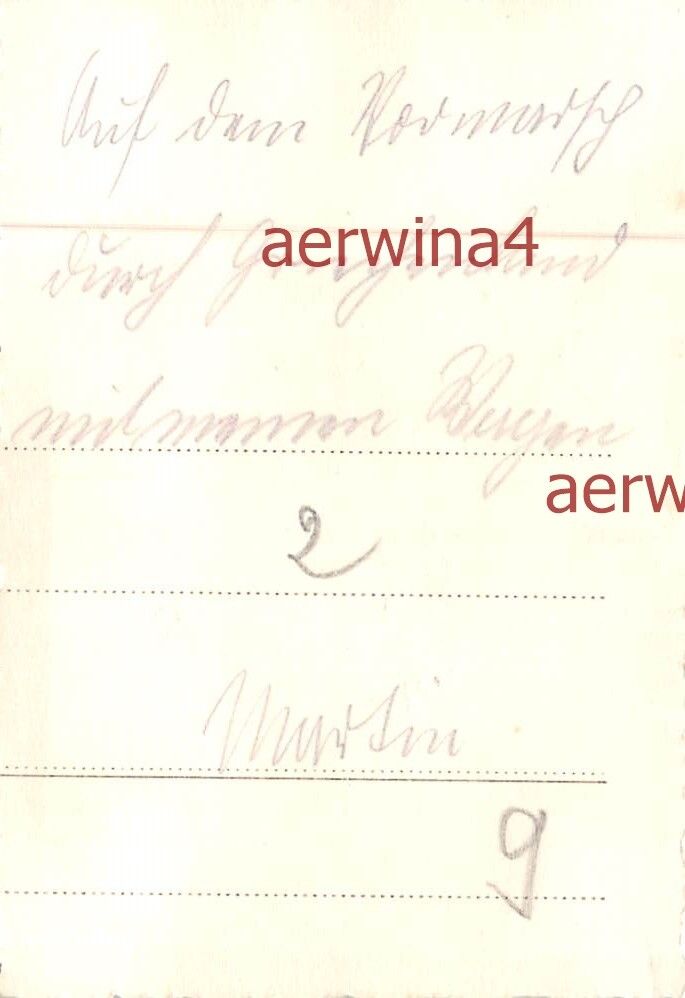 Auf dem Vormarsch
aerwina4
durch Griechenland
mit meinem Wagen
aerw
2
Martin
9